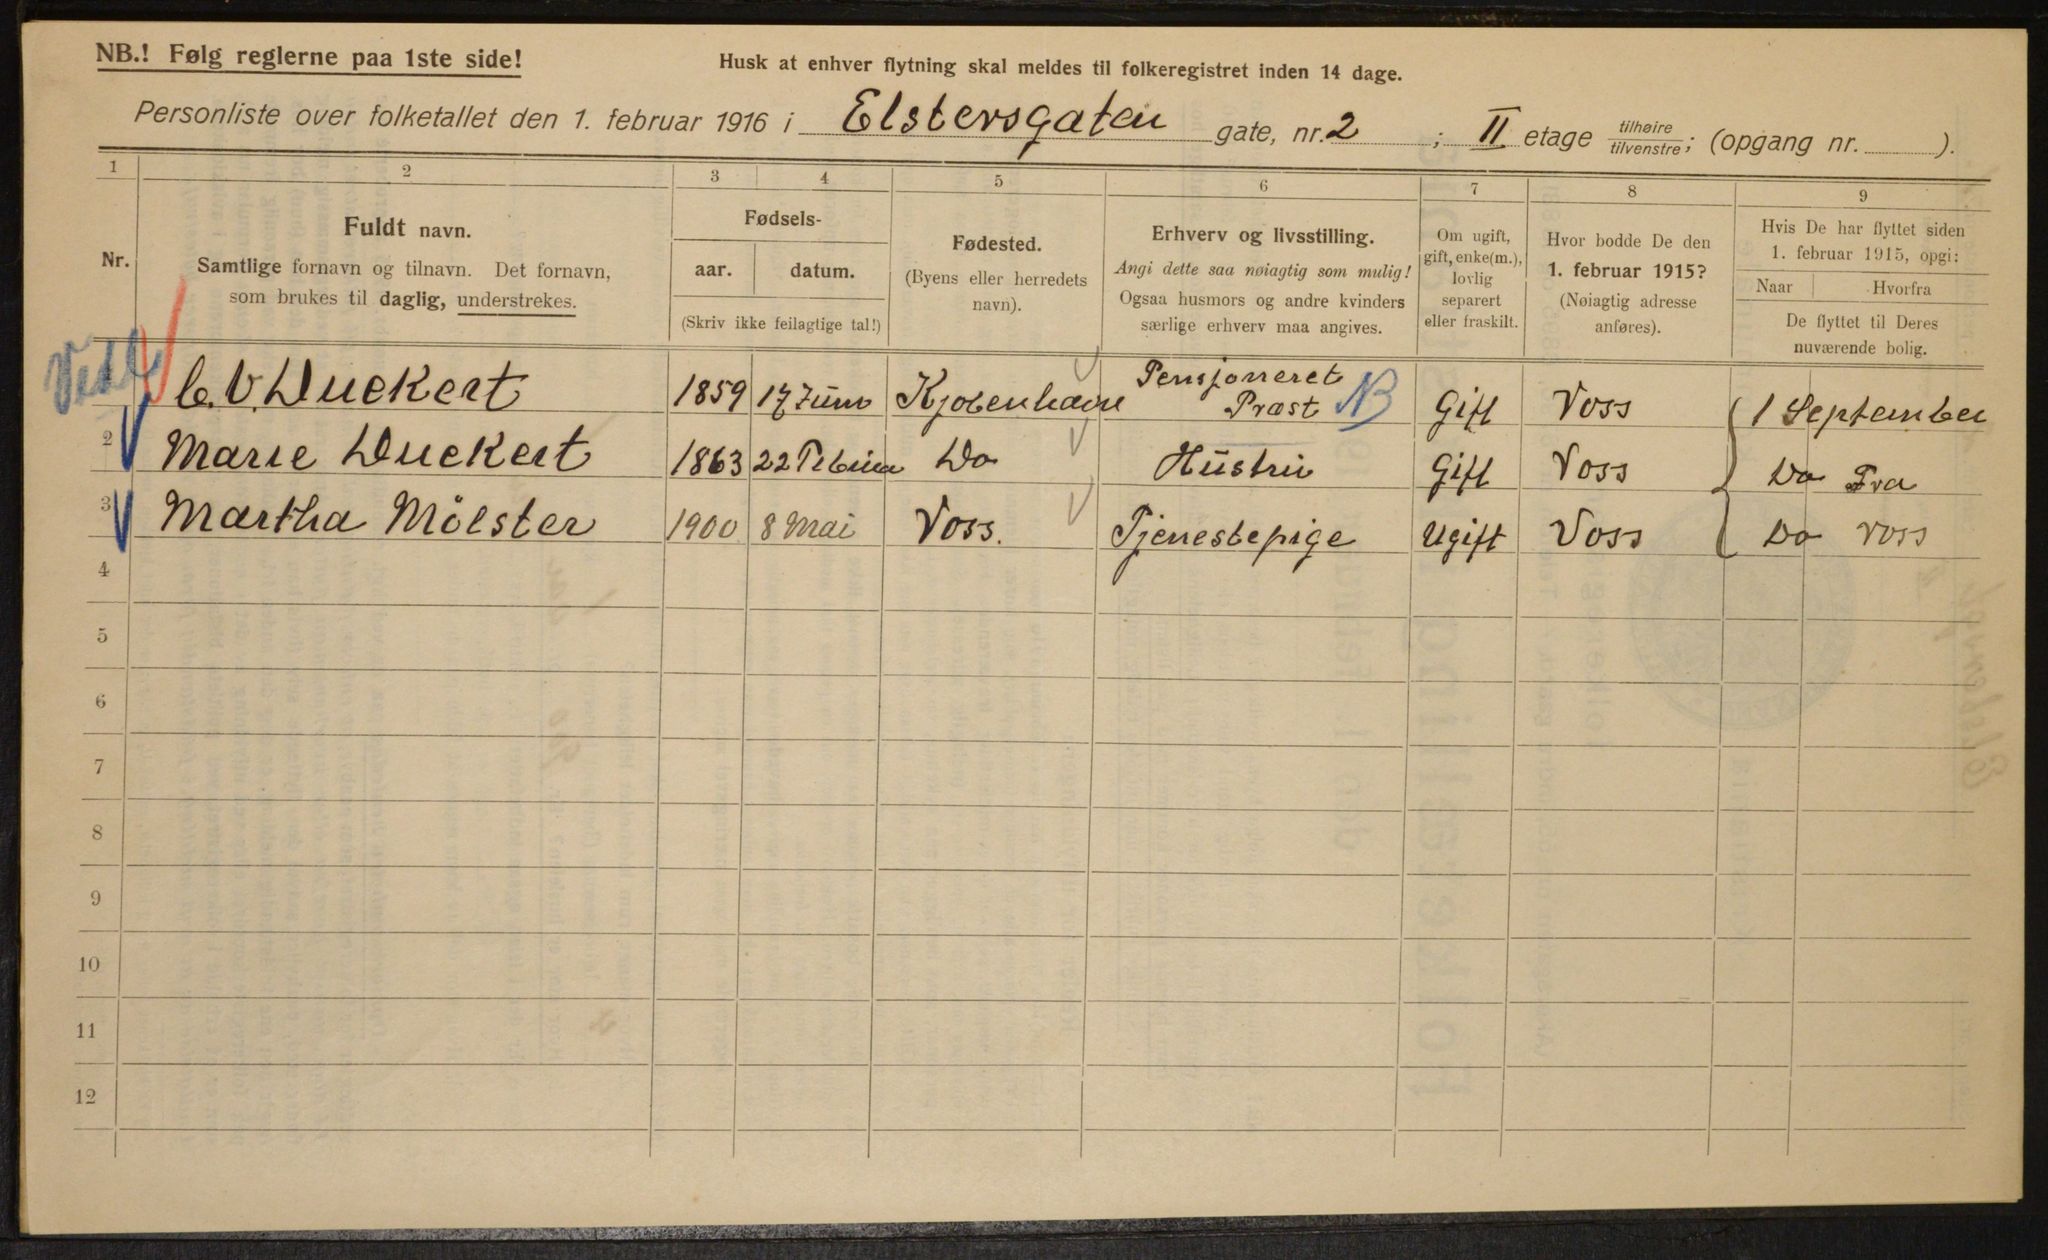 NB.! Følg reglerne paa 1ste side!
Husk at enhver flytning skal meldes til folkeregistret inden 14 dage.
Personliste over folketallet den 1. februar 1916 i Elstersgaten gate, nr. 2 ; II etage tilhøire tilvenstre; (opgang nr. ).
1 2 3 4 5 6 7 8 9
Nr.
Fuldt navn.
Samtlige fornavn og tilnavn. Det fornavn,
som brukes til daglig, understrekes.
Fødsels-
aar. datum.
(Skriv ikke feilagtige tal!)
Fødested.
(Byens eller herredets
navn).
Erhverv og livsstilling.
Angi dette saa nøiagtig som mulig!
Ogsaa husmors og andre kvinders
særlige erhverv maa angives.
Om ugift,
gift, enke(m.),
lovlig
separert
eller fraskilt.
Hvor bodde De den
1. februar 1915?
(Nøiagtig adresse
anføres).
Hvis De har flyttet siden
1. februar 1915, opgi:
Naar Hvorfra
De flyttet til Deres
nuværende bolig.
C. V. Duckert 1859 17 Juni Kjøbenhavn Pensjoneret Præst NB Gift Voss 1 September
2 Marie Duckert 1863 22 Do Hustru Gift Voss Do Fra
3 Martha Mölster 1900 8 Mai Voss. Tjenestepige Ugift Voss Do Voss
4
5
6
7
8
9
10
11
12